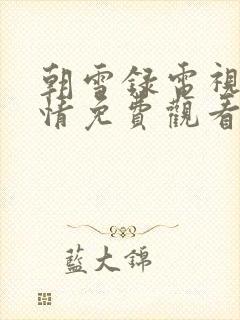 朝雪録電視
情免費觀看
藍大錦